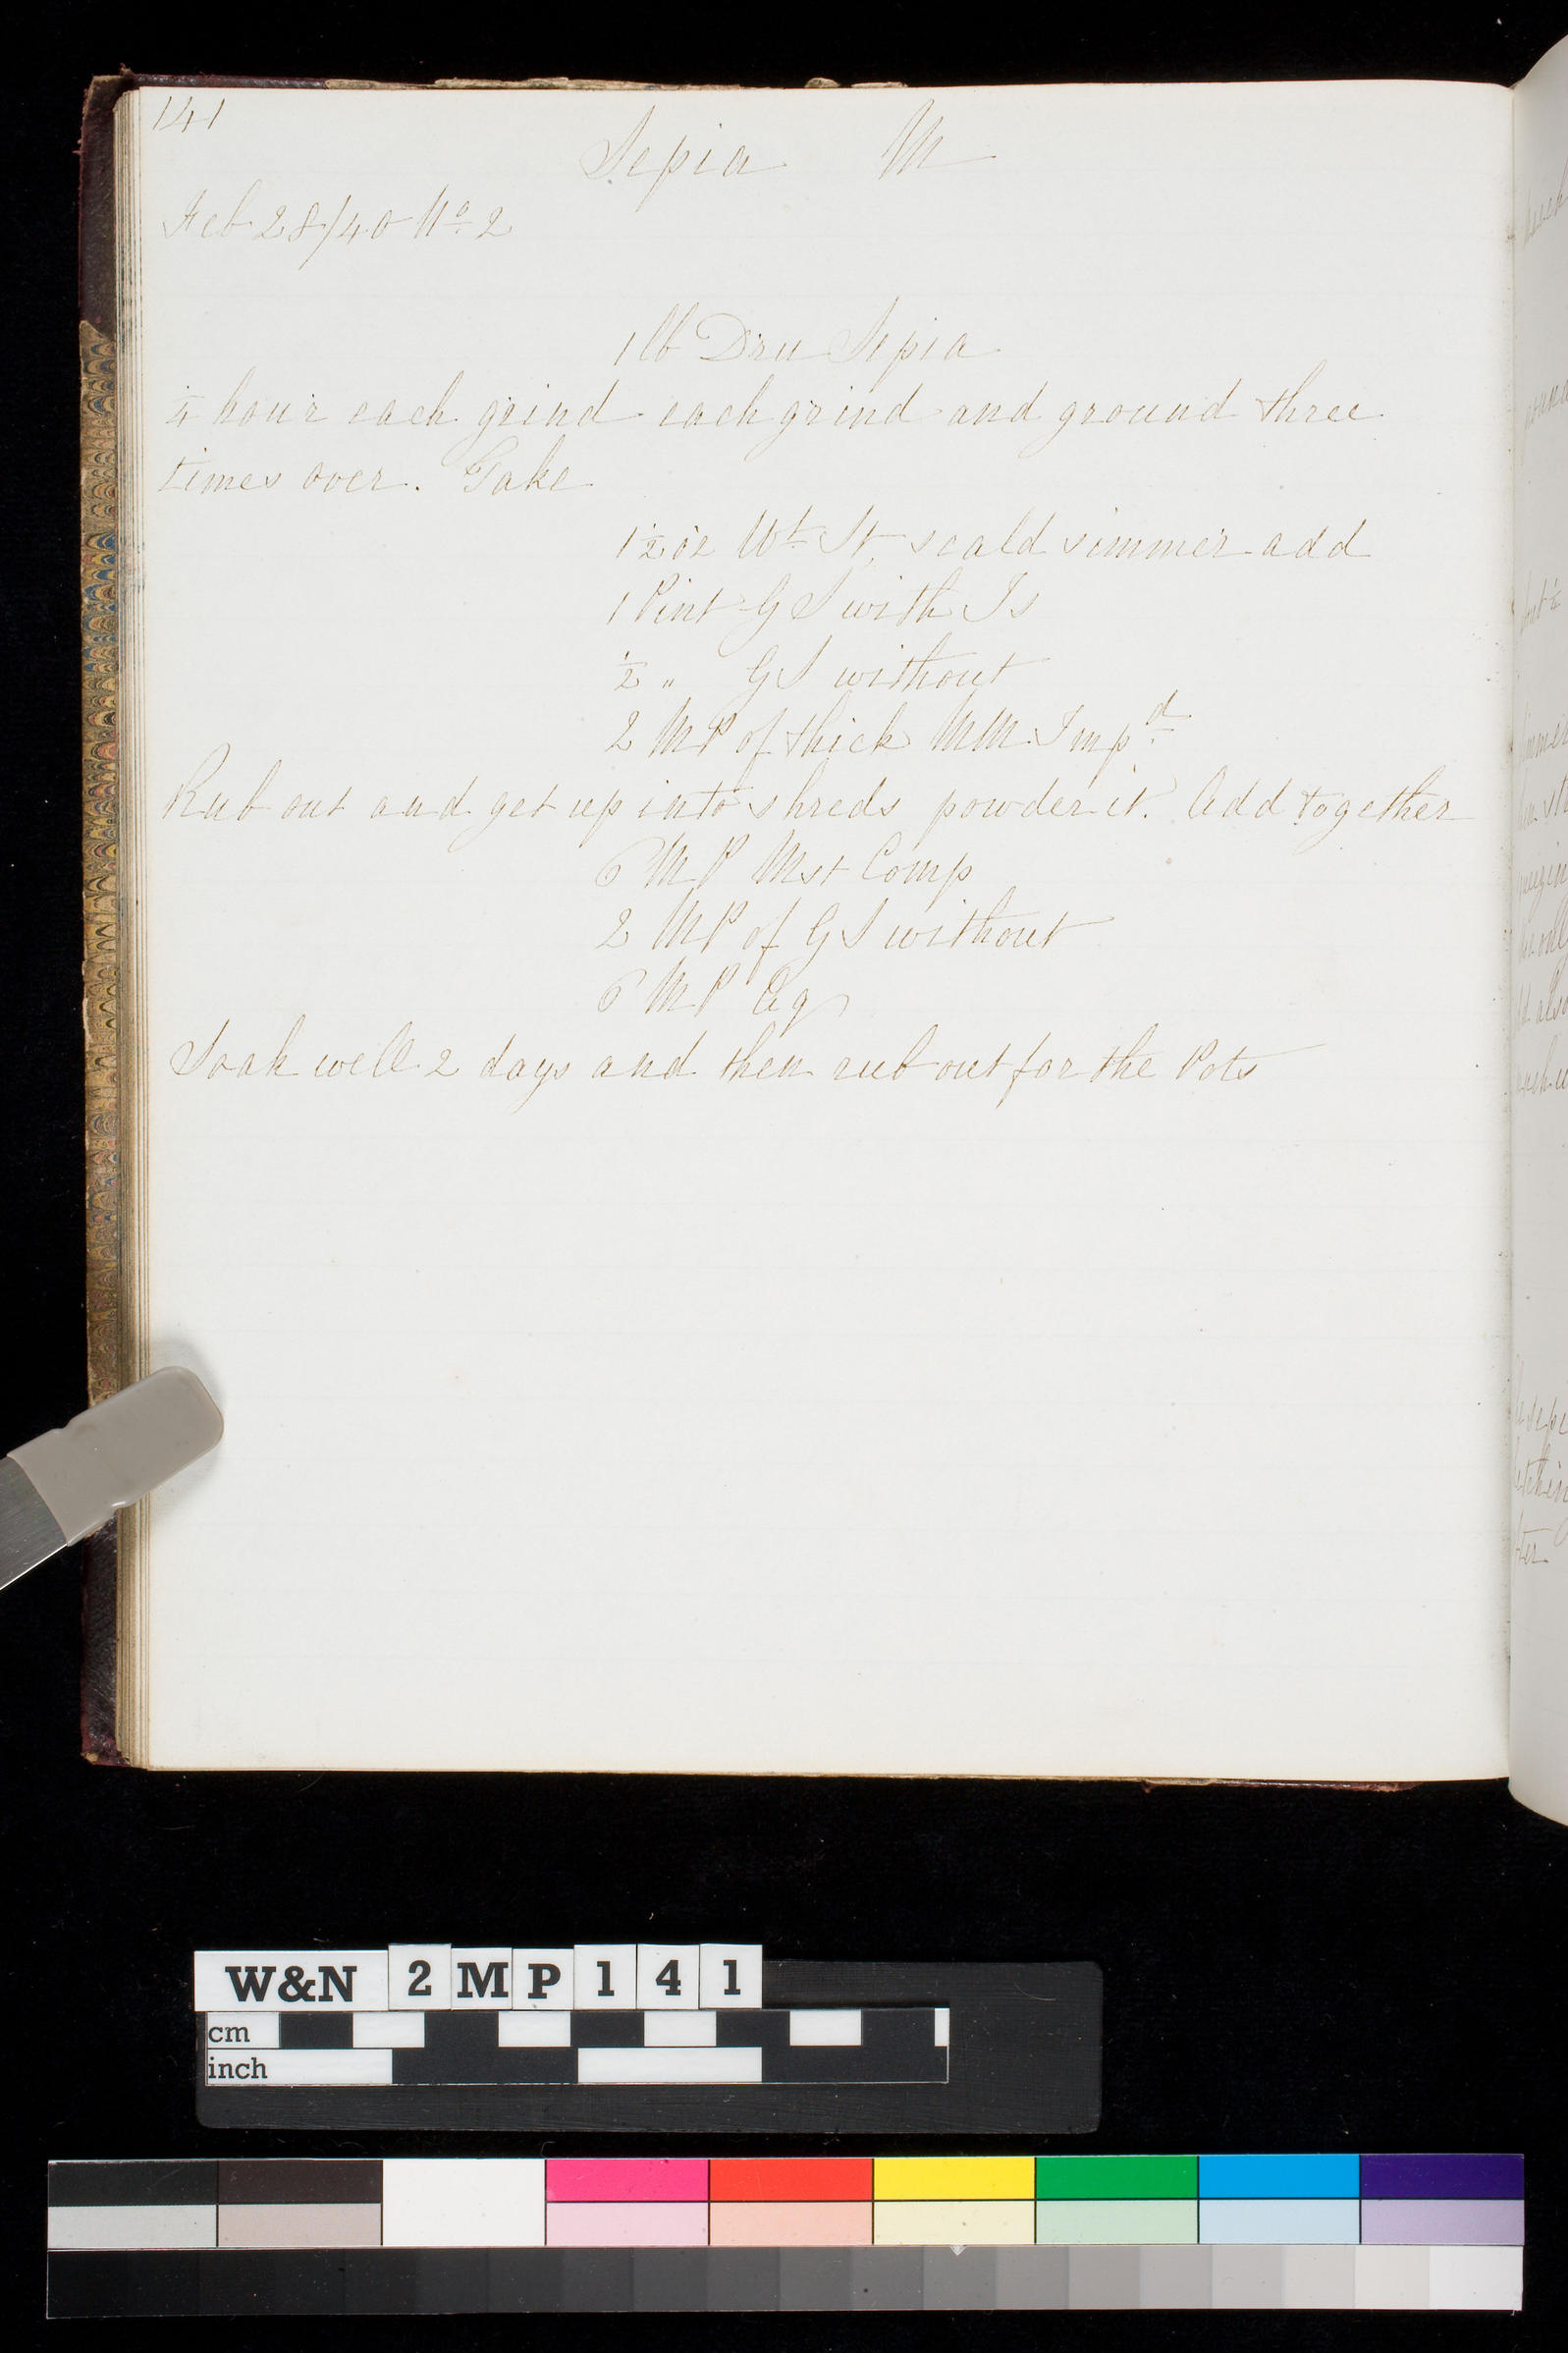 141
Sepia M
Feb 28/40 No. 2
1 lb Dru Sepia
¼ hour each grind each grind and ground three
times over. Take
1½ oz Wt. St. scald simmer add
1 Pint G S with Is
½ " G S without
2 MP of thick MM Impd.
Rub out and get up into shreds powder it. Add together
6 MP Mst Comp
2 MP of G S without
6 MP Aq
Soak well 2 days and then rub out for the Pots
W&N 2MP141
cm
inch